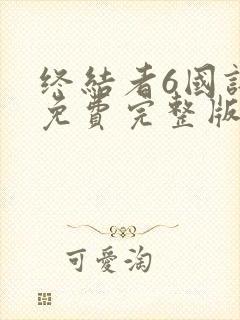 终結者6國
免費完整版
可愛淘